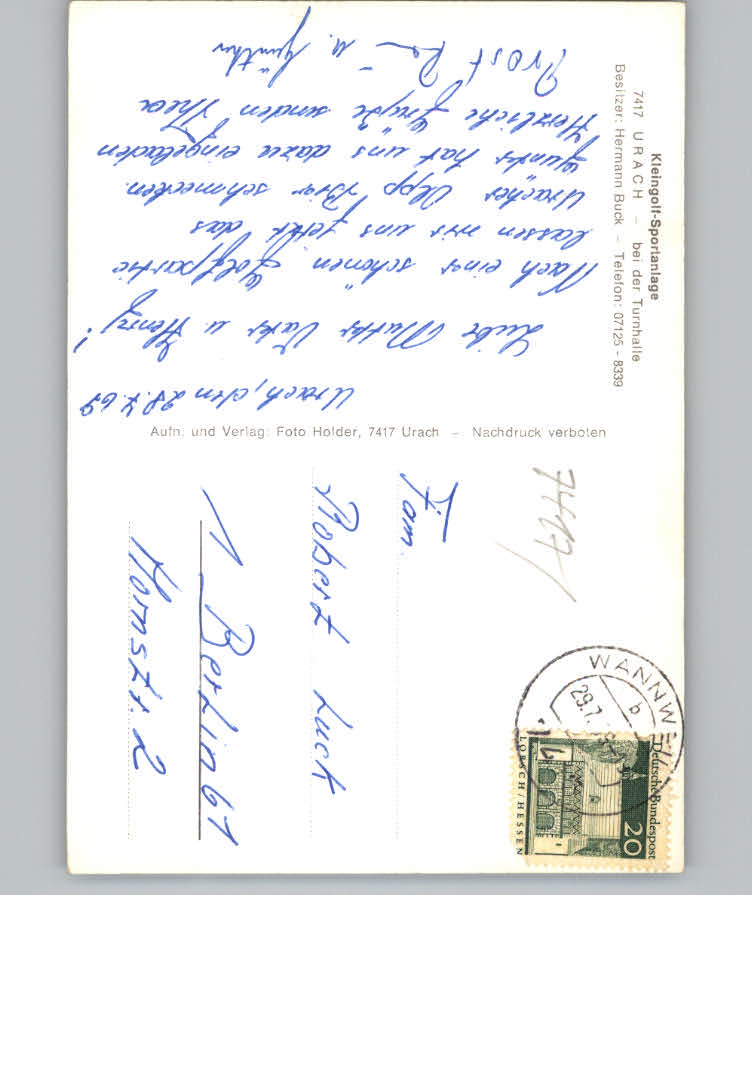 Kleingolf-Sportanlage
7417 URACH – bei der Turnhalle
Besitzer: Hermann Buck – Telefon: 07125 - 8339
Urach, den 28.7.69
Liebe Mutter Vater u. Henry!
Nach einer schönen Golfpartie
lassen wir uns jetzt das
Uracher Olpp Bier schmecken.
Gunter hat uns dazu eingeladen
Herzliche Grüße senden Thea
Prost u. Günther
Aufn. und Verlag: Foto Holder, 7417 Urach – Nachdruck verboten
7417/
Fam.
Robert Luck
1 Berlin 61
Hornstr. 2
WANNWEIL
b
29.7.
Deutsche Bundespost
20
LORSCH/HESSEN